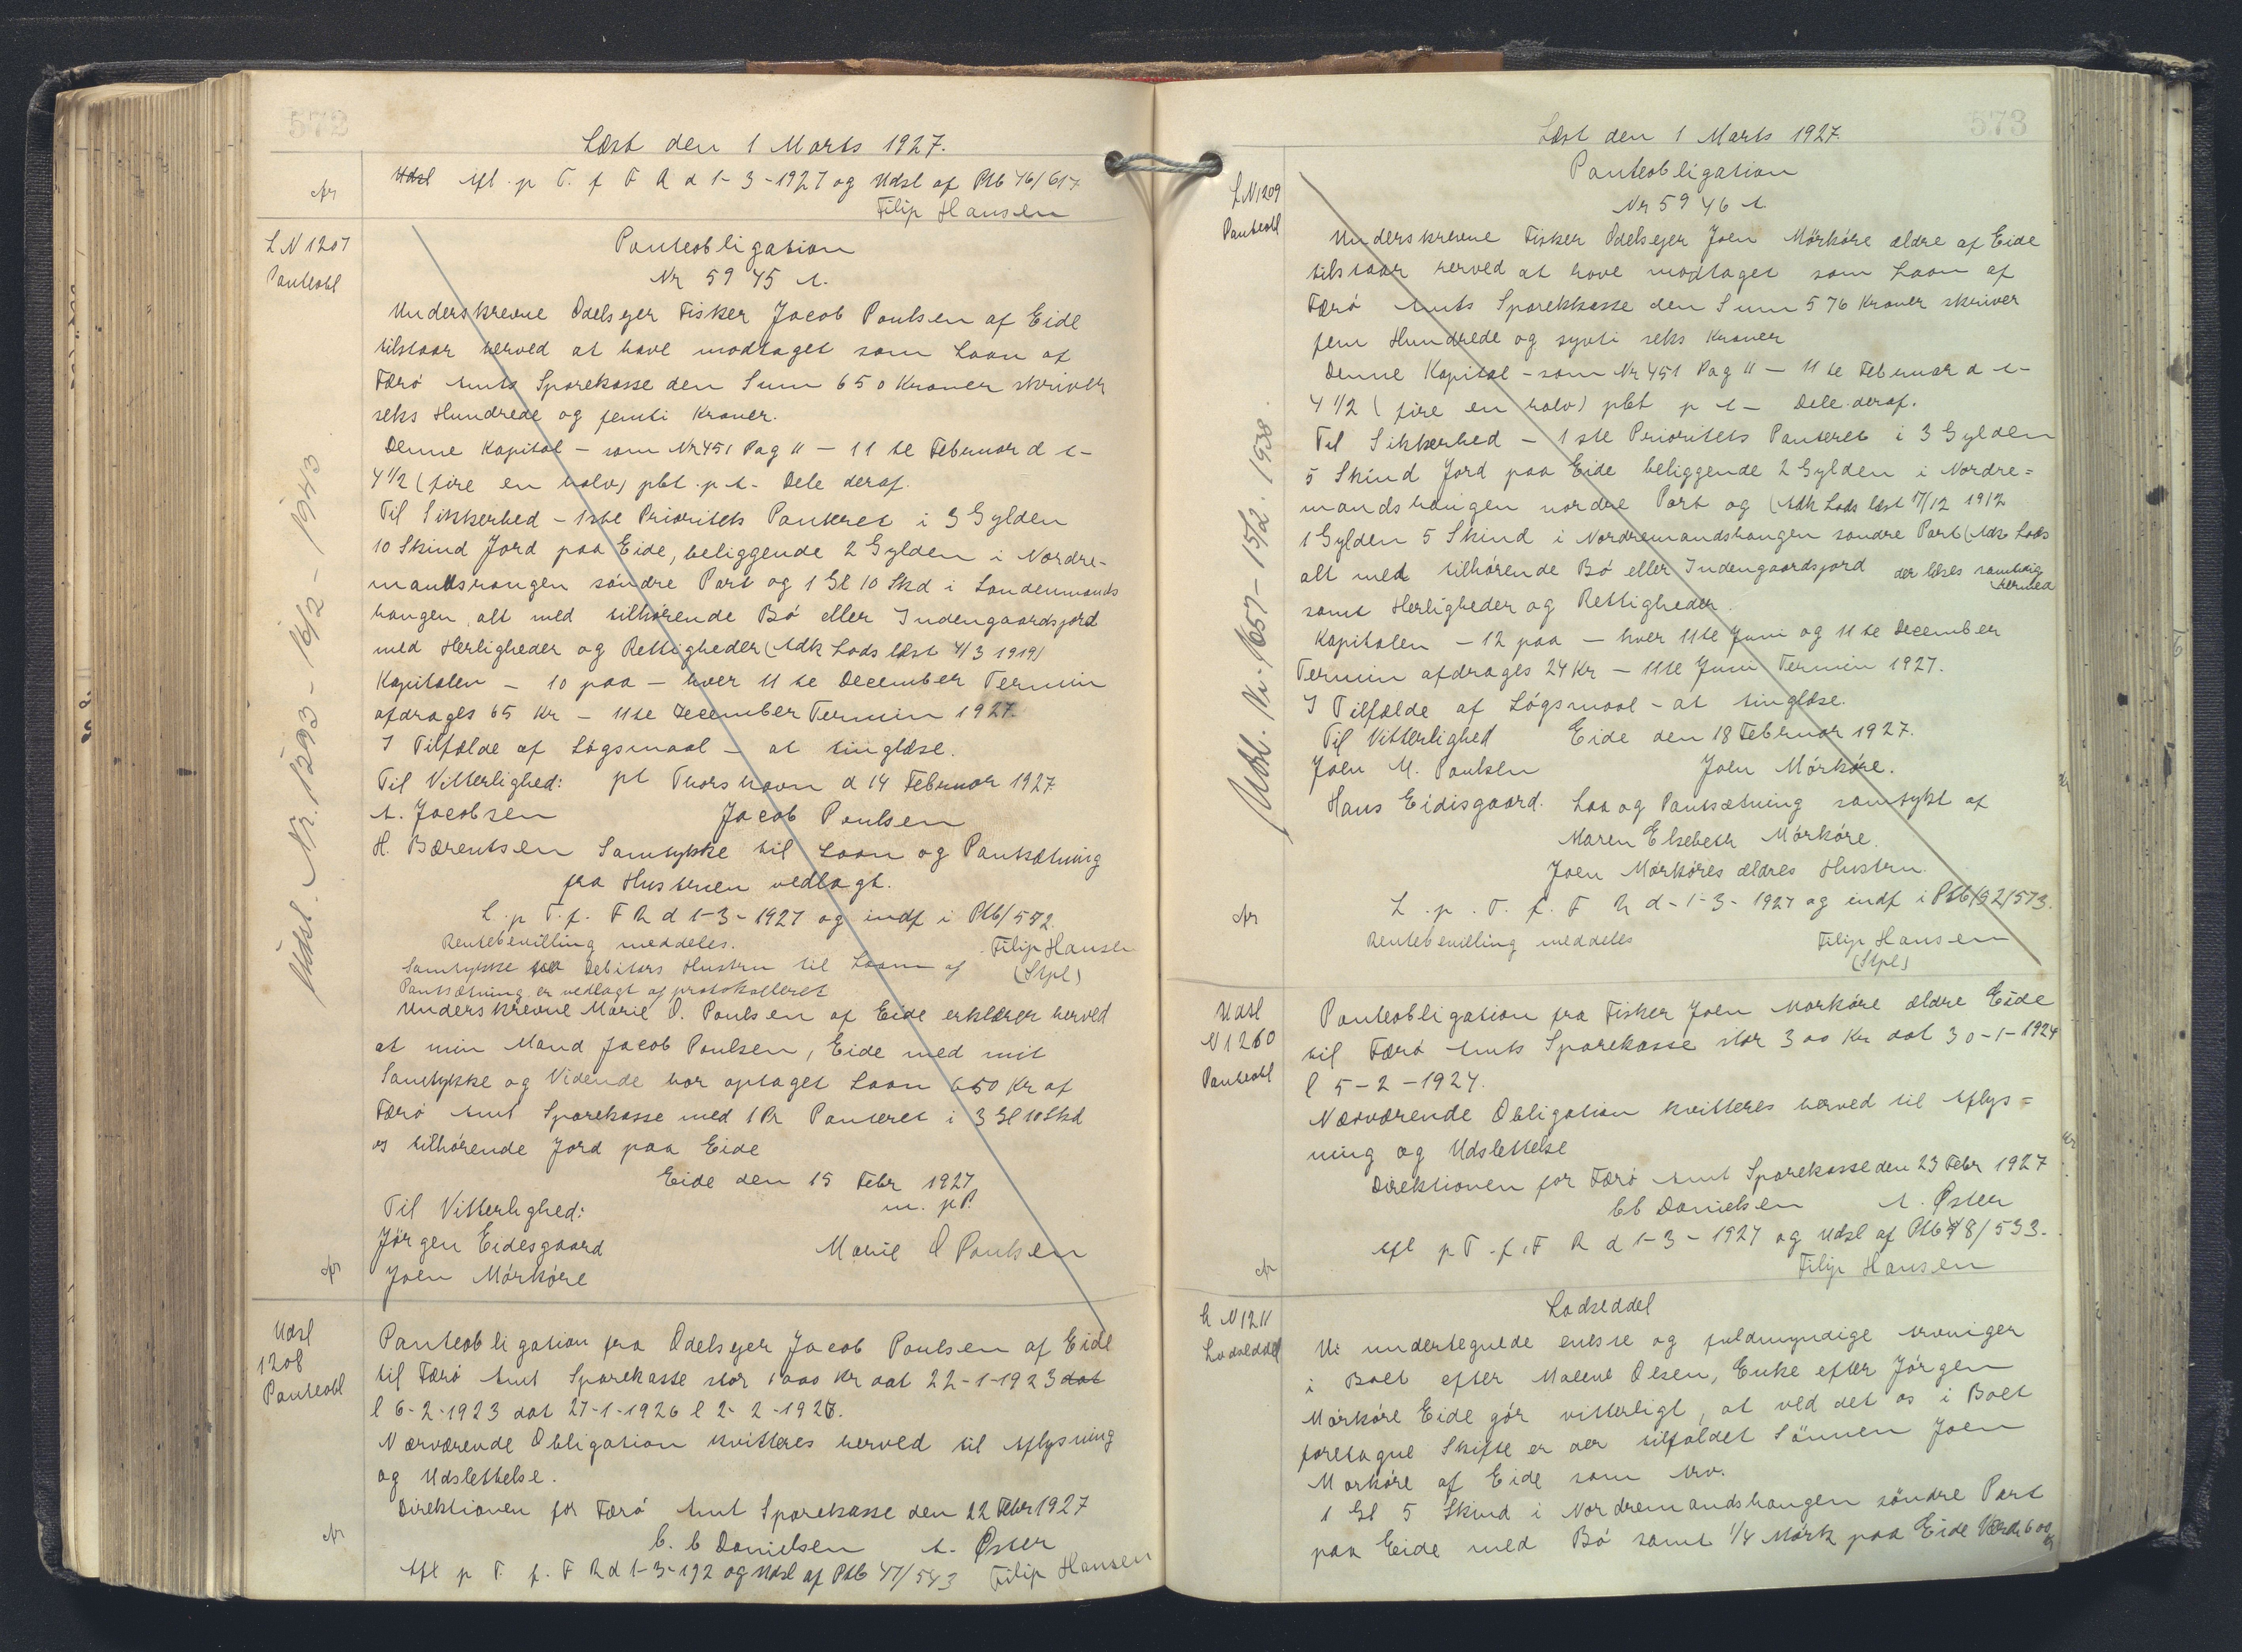 572
Læst den 1 Marts 1927.
Udsl Afl. p T. f F R d 1-3-1927 og Udsl af Ptb 46/617
Filip Hansen
L N 1207
Panteobl
Panteobligation
Nr 5945 A.
Underskrevne Odelsejer Fisker Jacob Poulsen af Eide
tilstaar herved at have modtaget som Laan af
Færø Amts Sparekasse den Sum 650 Kroner skriver
seks Hundrede og femti Kroner.
Denne Kapital - som Nr 451 Pag 11 - 11 te Februar d A -
4 1/2 (fire en halv) pCt. p A - Dele deraf.
Til Sikkerhed - 1ste Prioritets Panteret i 3 Gylden
10 Skind Jord paa Eide, beliggende 2 Gylden i Nordre-
mandshougen søndre Part og 1 Gl 10 Skd i Sandenmands
hougen, alt med tilhørende Bø eller Indengaardsjord
med Herligheder og Rettigheder (Adk Lods læst 4/3 1919)
Kapitalen - 10 paa - hver 11 te December Termin
afdrages 65 Kr - 11te December Termin 1927.
I Tilfælde af Løgsmaal - at tinglæse.
Til Vitterlighed: pt Thorshavn d 14 Februar 1927
A. Jacobsen Jacob Poulsen
H. Bærentsen Samtykke til Laan og Pantsætning
fra Hustruen vedlagt.
L. p T. f. F R d 1-3-1927 og indf i Ptb/572.
Rentebevilling meddeles. Filip Hansen
Samtykke fra Debitors Hustru til Laan og (Stpl)
Pantsætning er vedlagt og protokolleret
Underskrevne Marie O. Poulsen af Eide erklærer herved
at min Mand Jacob Poulsen, Eide med mit
Samtykke og Vidende har optaget Laan 650 Kr af
Færø Amt Sparekasse med 1 Pr Panteret i 3 Gl 10 Skd
og tilhørende Jord paa Eide
Eide den 15 Febr 1927
m. p P.
Til Vitterlighed:
Jørgen Eidesgaard Marie O Poulsen
Joen Mørkøre
Udsl. Nr. 1293 - 16/2 - 1943
Udsl
1208
Panteobl
Panteobligation fra Odelsejer Jacob Poulsen af Eide
til Færø Amt Sparekasse stor 1000 Kr dat 22-1-1923 dat
l 6-2-1923 dat 27-1-1926 l 2-2-1926.
Nærværende Obligation kvitteres herved til Aflysning
og Udslettelse.
Direktionen for Færø Amt Sparekasse den 22 Febr 1927
C. C Danielsen A. Øster
Afl p T f. F R d 1-3-192 og Udsl af Ptb 47/543 Filip Hansen
573
Læst den 1 Marts 1927.
L N 1209
Panteobl
Panteobligation
Nr 5946 A
Underskrevne Fisker Odelsejer Joen Mørkøre ældre af Eide
tilstaar herved at have modtaget som Laan af
Færø Amts Sparekkasse den Sum 576 Kroner skriver
fem Hundrede og syvti seks Kroner
Denne Kapital - som Nr 451 Pag 11 - 11 te Februar d A -
4 1/2 (fire en halv) pCt p A - Dele deraf.
Til Sikkerhed - 1ste Prioritets Panteret i 3 Gylden
5 Skind Jord paa Eide beliggende 2 Gylden i Nordre=
mandshaugen nordre Part og (Adk Lods læst 17/12 1912
1 Gylden 5 Skind i Nordremandshaugen søndre Part (Adk Lods
alt med tilhørende Bø eller Indengaardsjord der læses samtidig hermed
samt Herligheder og Rettigheder.
Kapitalen - 12 paa - hver 11te Juni og 11 te December
Termin afdrages 24 Kr - 11te Juni Termin 1927.
I Tilfælde af Løgsmaal - at tinglæse.
Til Vitterlighed Eide den 18 Februar 1927.
Joen M. Poulsen Joen Mørkøre.
Hans Eidisgaard. Laa og Pantsætning samtykt af
Maren Elsebeth Mørkøre.
Joen Mørkøres ældres Hustru.
L. p. T. f. F R d - 1-3-1927 og indf i Ptb/52/573.
Rentebevilling meddeles Filip Hansen
(Stpl)
Udsl. Nr. 1657 - 15/2. 1938.
Udsl
N 1260
Panteobl
Panteobligation fra Fisker Joen Mørkøre ældre Eide
til Færø Amts Sparekasse stor 300 Kr dat 30-1-1924
l 5-2-1924.
Nærværende Obligation kvitteres herved til Aflys=
ning og Udslettelse
Direktionen for Færø Amt Sparekasse den 23 Febr 1927
CC Danielsen A. Øster
Afl p T. f. F R d 1-3-1927 og Udsl af Ptb 48/533.
Filip Hansen
L N 1211
Lodseddel
Lodseddel
Vi undertegnede eneste og fuldmyndige Arvinger
i Boet efter Malene Olsen, Enke efter Jørgen
Mørkøre Eide gør vitterligt, at ved det os i Boet
foretagne Skifte er der tilfaldet Sønnen Joen
Mørkøre af Eide som Arv.
1 Gl 5 Skind i Nordremandshaugen søndre Part
paa Eide med Bø samt 1/4 Mørk paa Eide Værdi 600 Kr